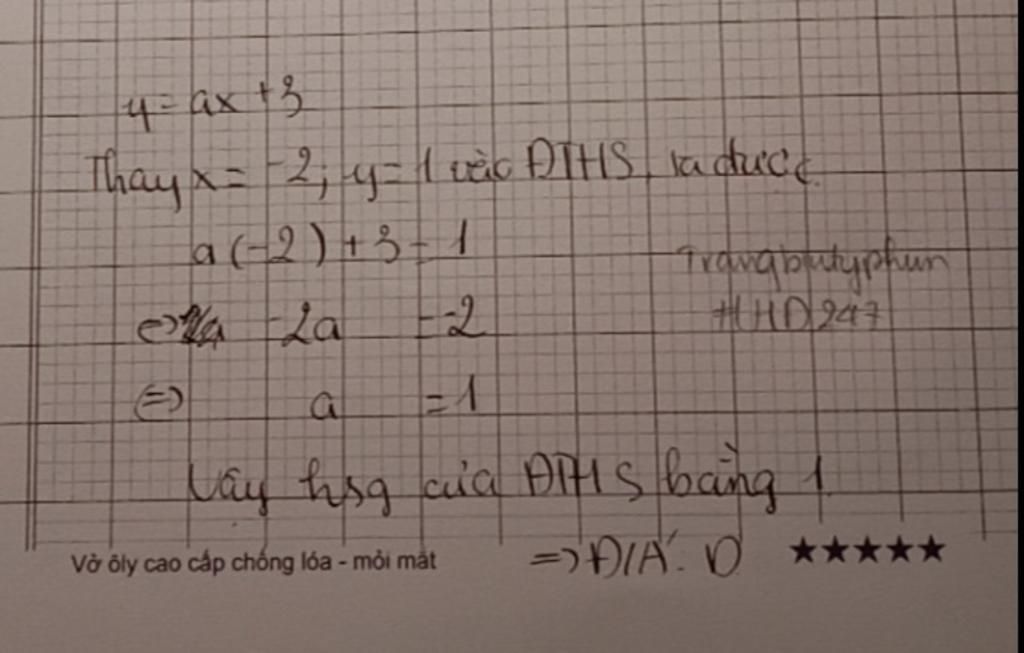 y = ax + 3
Thay x = -2; y = 1 vào ĐTHS, ta được
a(-2) + 3 = 1
⇔ -2a = -2
⇔ a = 1
Trangbutyphun
HHD247
Vậy hsg của ĐTHS bằng 1
⇒ Đ/Á: D ★★★★★
Vở ôly cao cấp chống lóa - mỏi mắt